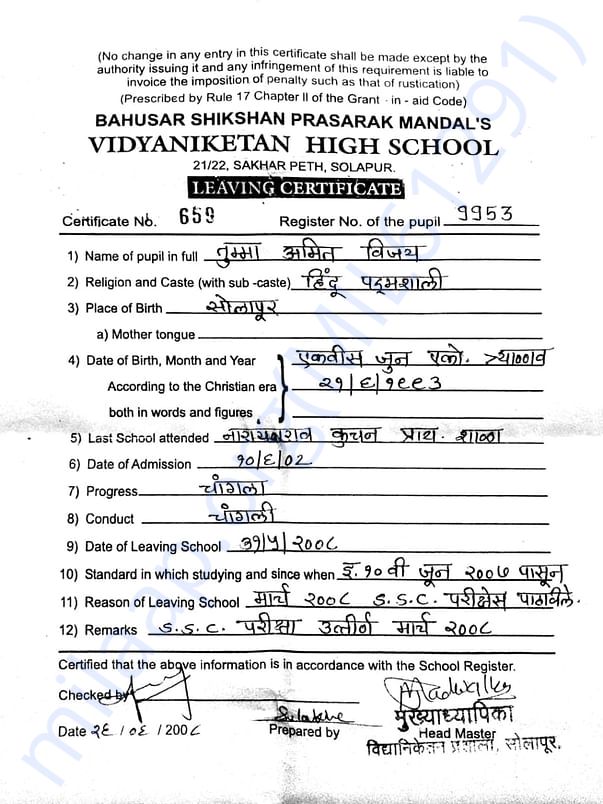 (No change in any entry in this certificate shall be made except by the
authority issuing it and any infringement of this requirement is liable to
invoice the imposition of penalty such as that of rustication)
(Prescribed by Rule 17 Chapter II of the Grant - in - aid Code)
BAHUSAR SHIKSHAN PRASARAK MANDAL'S
VIDYANIKETAN HIGH SCHOOL
21/22, SAKHAR PETH, SOLAPUR.
LEAVING CERTIFICATE
Certificate No. 659 Register No. of the pupil 9953
1) Name of pupil in full तुम्मा अमित विजय
2) Religion and Caste (with sub -caste) हिंदू पद्मशाली
3) Place of Birth सोलापूर
a) Mother tongue
4) Date of Birth, Month and Year एकवीस जून एको. त्र्याण्णव
According to the Christian era २१/६/१९९३
both in words and figures
5) Last School attended नारायणराव कुचन प्राथ. शाळा
6) Date of Admission १०/६/०२
7) Progress चांगला
8) Conduct चांगली
9) Date of Leaving School ३१/५/२००८
10) Standard in which studying and since when इ.१० वी जून २००७ पासून
11) Reason of Leaving School मार्च २००८ S.S.C. परीक्षेस पाठविले.
12) Remarks S.S.C. परीक्षा उत्तीर्ण मार्च २००८
Certified that the above information is in accordance with the School Register.
Checked by
मुख्याध्यापिका
Date २६/०६/200८ Prepared by Head Master
विद्यानिकेतन प्रशाला, सोलापूर.